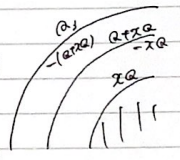 -(Q+xQ)
Q+xQ
-xQ
xQ